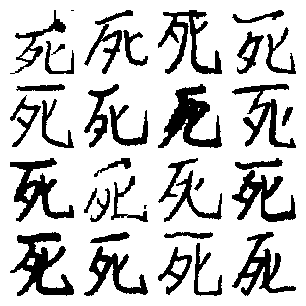 死死死死
死死死死
死死死死
死死死死